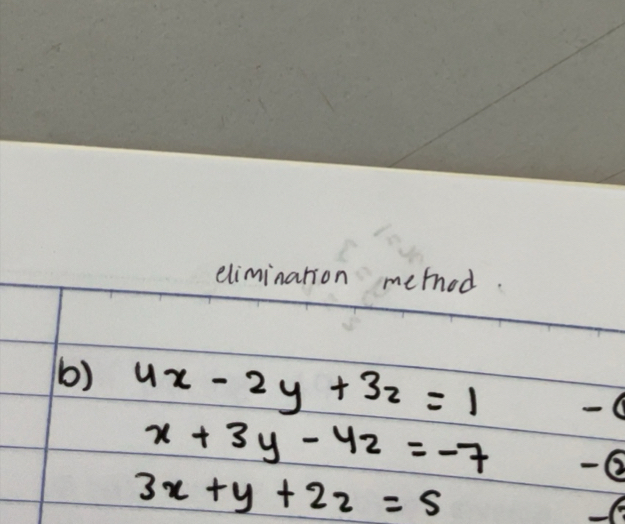 elimination method.
b) 4x - 2y + 3z = 1 - ①
x + 3y - 4z = -7 - ②
3x + y + 2z = 5 - ③